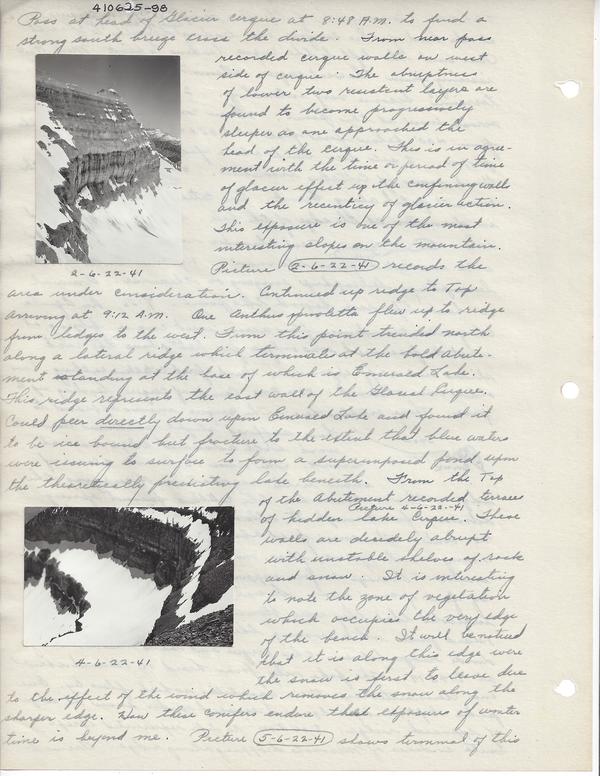 410625-98
Pass at head of Glacier cirque at 8:48 A.M. to find a
strong south breeze cross the divide. From near pass
recorded cirque walls on west
side of cirque. The abruptness
of lower two resistent layers are
found to become progressively
steeper as one approached the
head of the cirque. This is in agree-
ment with the time or period of time
of glacier effect up the confining walls
and the recenticy of glacier action.
This exposure is one of the most
interesting slopes on the mountain.
2-6-22-41
Picture 2-6-22-41 records the
area under consideration. Continued up ridge to Top
arriving at 9:12 A.M. One Anthus spinoletta flew up to ridge
from ledges to the west. From this point trended north
along a lateral ridge which terminates at the bold abute-
ment standing at the base of which is Emerald Lake.
This ridge represents the east wall of the Glacial Cirque.
Could peer directly down upon Emerald Lake and found it
to be ice bound but fracture to the extent that blue waters
were issuing to surface to form a superimposed pond upon
the theoretically preexisting lake beneath. From the Top
of the Abutement recorded terraces
Picture 4-6-22-41
of hidden lake Cirque. These
walls are decidely abrupt
with unstable shelves of rock
and snow. It is interesting
to note the zone of vegetation
which occupies the very edge
of the bench. It will be noticed
4-6-22-41
that it is along this edge were
the snow is first to leave due
to the effect of the wind which removes the snow along the
sharper edge. How these conifers endure that exposures of winter
time is beyond me. Picture 5-6-22-41 shows terminal of this